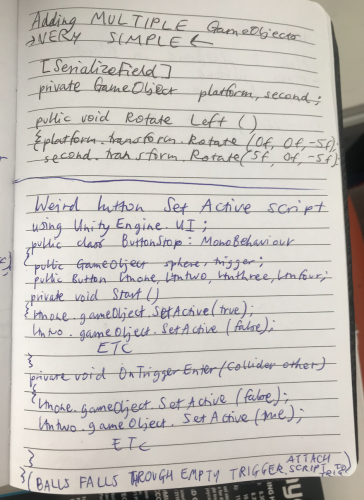 Adding MULTIPLE GameObjects
→ VERY SIMPLE ←
[SerializeField]
private GameObject platform, second;
public void Rotate Left ()
{platform.transform.Rotate (0f, 0f, -5f);
second.transform.Rotate(5f, 0f, -5f)
Weird button Set Active script
using Unity Engine.UI;
public class ButtonStop: MonoBehaviour
{ public GameObject sphere, trigger;
public Button btnone, btntwo, btnthree, btnfour;
private void Start()
{btnone.gameObject.SetActive(true);
btntwo.gameObject.SetActive (false);
ETC
}
private void OnTriggerEnter(Collider other)
{btnone.gameObject.Set Active (false);
btntwo.gameObject.SetActive (true);
ETC
}
}(BALLS FALLS THROUGH EMPTY TRIGGER, ATTACH SCRIPT